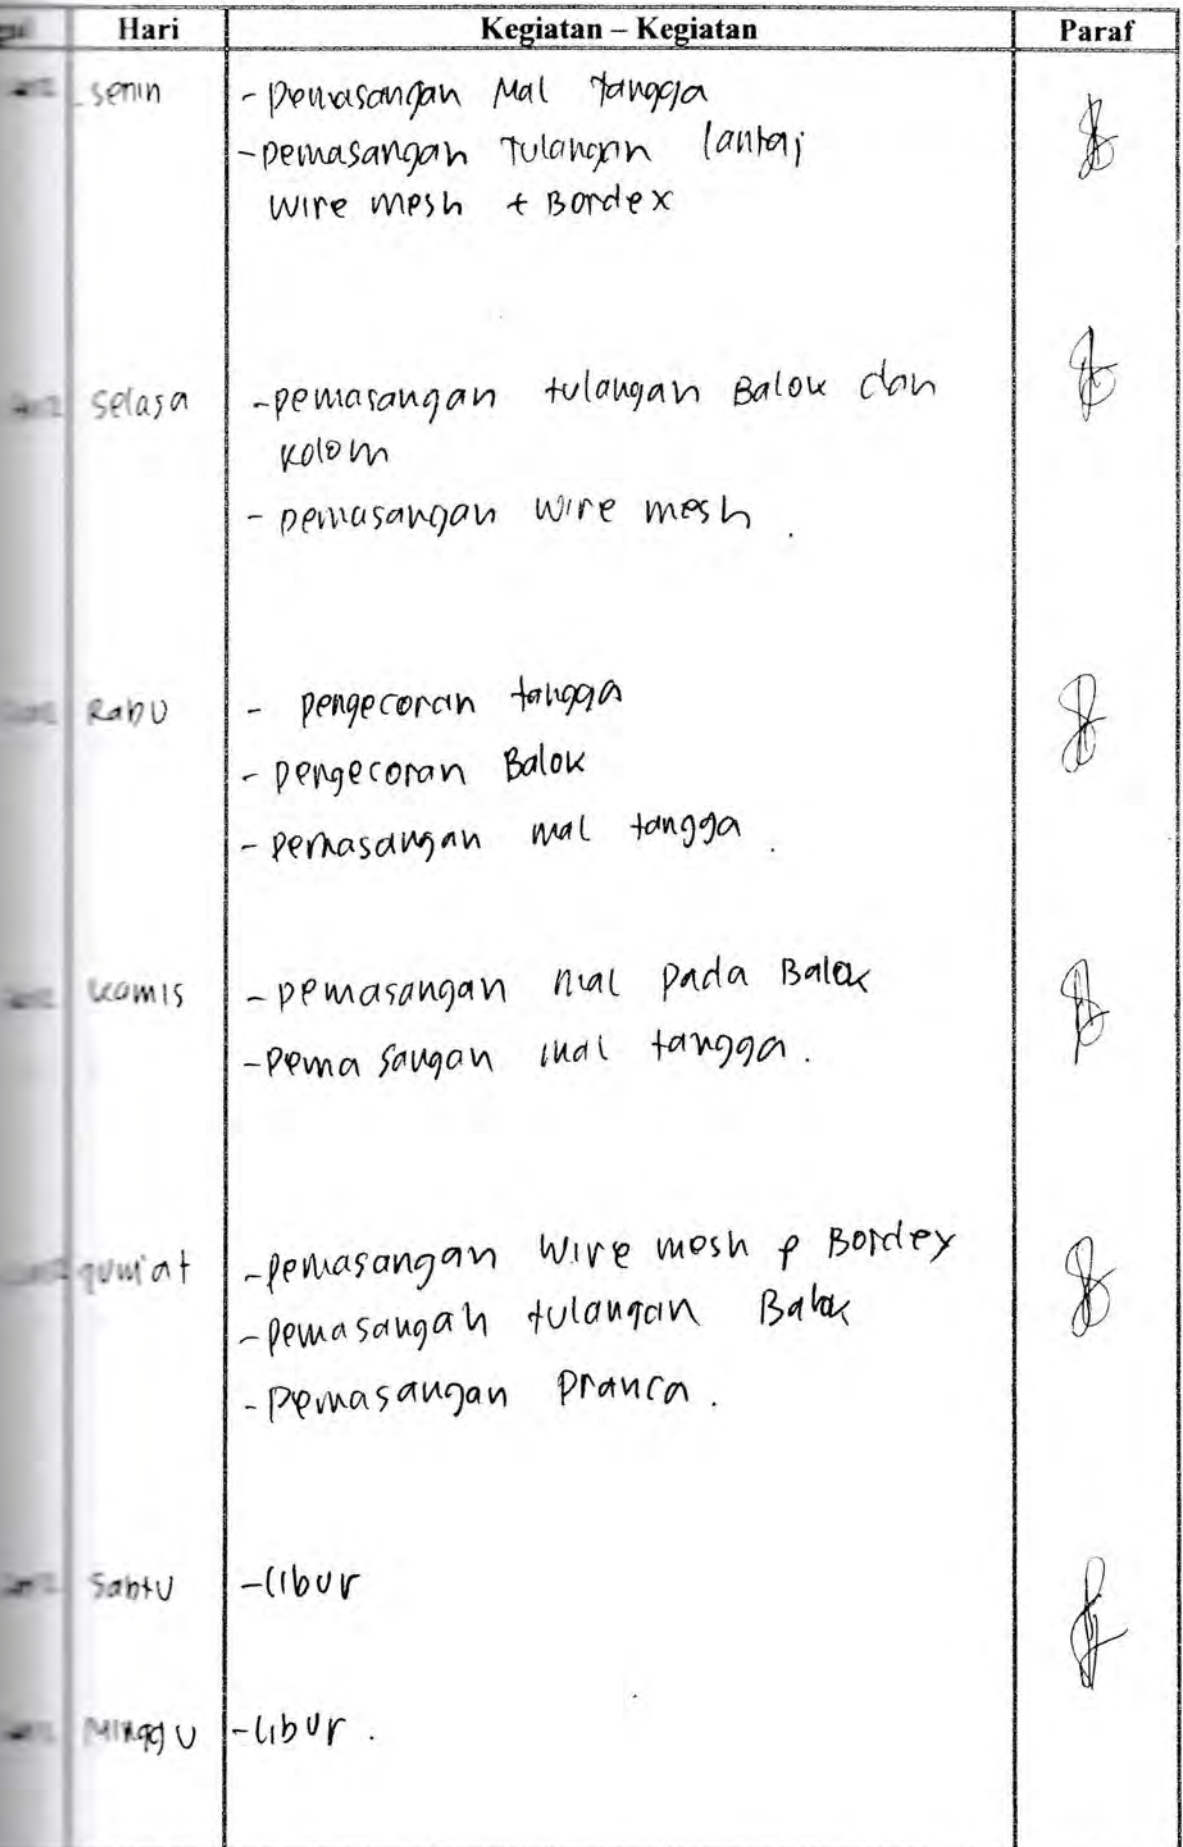 Hari Kegiatan – Kegiatan Paraf
senin - pemasangan Mal Tangga
- pemasangan Tulangan lantai
wire mesh + Bordex
selasa - pemasangan tulangan Balok dan
kolom
- pemasangan wire mesh .
Rabu - pengecoran tangga
- pengecoran Balok
- pemasangan mal tangga .
kamis - pemasangan mal pada Balok
- pemasangan mal tangga .
jum'at - pemasangan wire mesh Bordey
- pemasangan tulangan Balok
- pemasangan pranca .
Sabtu - libur
Minggu - libur .